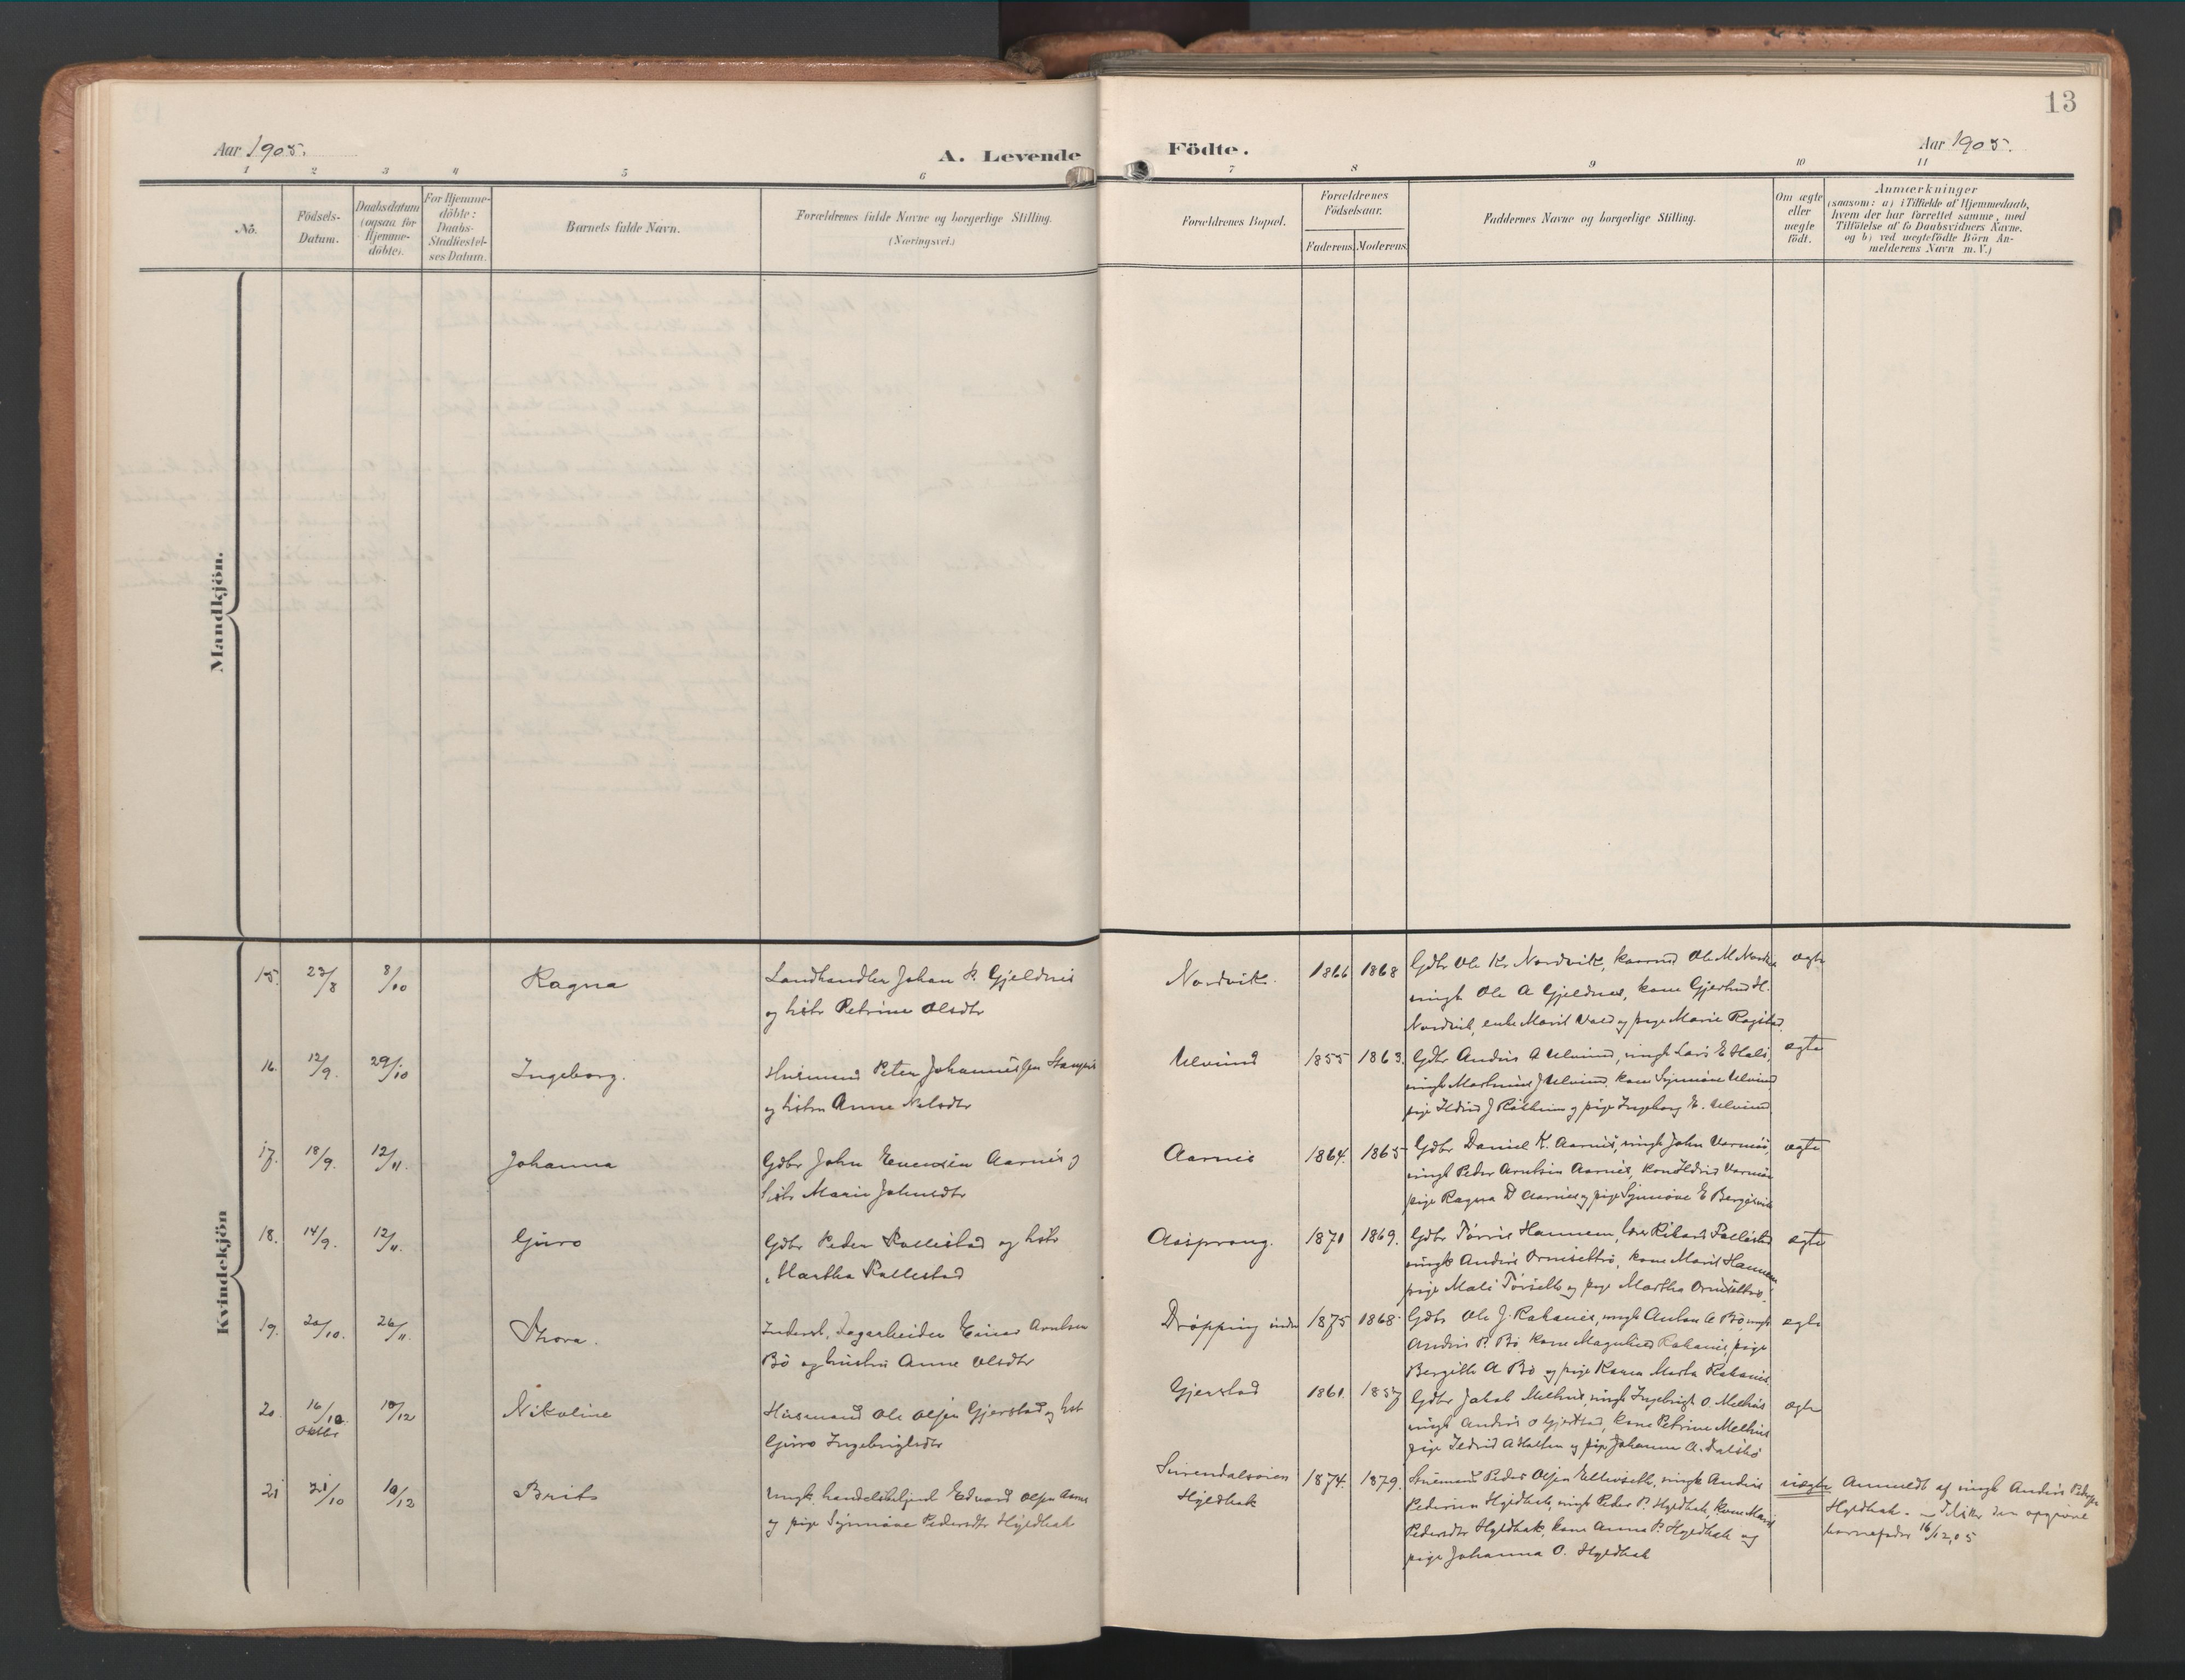 13
Aar 1905.
A. Levende
Födte.
Aar 1905.
1 2 3 4 5 6 7 8 9 10 11
No.
Födsels-
Datum.
Daabsdatum
(ogsaa for
Hjemme-
döbte).
For Hjemme-
döbte:
Daabs-
Stadfæstel-
ses Datum.
Barnets fulde Navn.
Forældrenes fulde Navne og borgerlige Stilling.
(Næringsvei.)
Forældrenes Bopæl.
Forældrenes
Födselsaar.
Faderens.
Moderens.
Faddernes Navne og borgerlige Stilling.
Om ægte
eller
uægte
födt.
Anmærkninger
(saasom: a) i Tilfælde af Hjemmedaab,
hvem der har forrettet samme, med
Tilföielse af to Daabsvidners Navne.
og b) ved uægtefödte Börn An-
melderens Navn m. V.)
Mandkjön.
Kvindekjön
15. 23/8 8/10 Ragna
Landhandler Johan P. Gjeldnes
og hstr Petrine Olsdtr
Nordvik. 1866 1868
Gdbr Ole Kr Nordvik, kaarmd Ole M Nordvik
ungk Ole A Gjeldnes, kone Gjertrud H.
Nordvik, enke Marit Vaad og pige Marie Rogstad.
ægte
16. 12/9. 29/10 Ingeborg.
Husmand Peter Johannessen Stangvik
og hstru Anne Nelsdtr
Ulvund 1855 1863.
Gdbr Anders A Ulvund, ungk Lars E Hals,
ungk Martinus J Ulvund, kone Synnöve Ulvund
pige Ildrid J Röttum og pige Ingeborg E. Ulvund.
ægte
17. 18/9. 12/11. Johanna
Gdbr John Evensen Aarnes og
hstr Marie Johnsdtr
Aarnes 1864. 1865
Gdbr Daniel K. Aarnes, ungk John Vermöe,
ungk Peder Arntsen Aarnes, kone Ildrid Vermöe
pige Ragna D Aarnes og pige Synnöve E Bergövik
ægte
18. 14/9. 12/11. Guro
Gdbr Peder Rollestad og hstr
Martha Rollestad
Aasprong. 1870 1869.
Gdbr Törris Hannem, Rikard
ungk Anders Ormsettrö, kone Marit Hannem
pige Mali Törsett og pige Martha Ormsettrö.
ægte
19. 20/10. 26/11. Thora.
Inderst, Dagarbeider Einar Arntsen
Bö og hustru Anne Olsdtr
Dröpping indre 1875 1868
Gdbr Ole J. Rakanes, ungk Anton A Bö, ungk
Anders P. Bö, kone Magnhild Rakanes, pige
Bergitte A Bö og pige Karen Marta Rakanes.
ægte
20. 16/10 oktbr 10/12 Nikoline
Husmand Ole Olsen Gjerstad og hst
Guro Ingebrigtsdtr
Gjerstad 1861. 1857
Gdbr Jakob Melhus, ungk Ingebrigt O. Melhus
ungk Anders O Gjerstad, kone Petrine Melhus
pige Ildrid A Halsen og pige Johanne A.
ægte
21 21/10 10/12 Brit
Ungk. handelsbetjent Edvard Olsen Aasen
og pige Synnöve Pedersdtr Hyldbak
Surendalsören
Hyldbak
1874. 1879.
Husmand Peder Olsen Ellevseth, ungk Anders
Pedersen Hyldbak, ungk Peder P. Hyldbak, kone Marit
Pedersdtr Hyldbak, kone Anna P. Hyldbak og
pige Johanna O. Hyldbak
uægte
Anmeldt af ungk Anders Peders.
Hyldbak. — Tilskr. den opgivne
barnefader 16/12,05